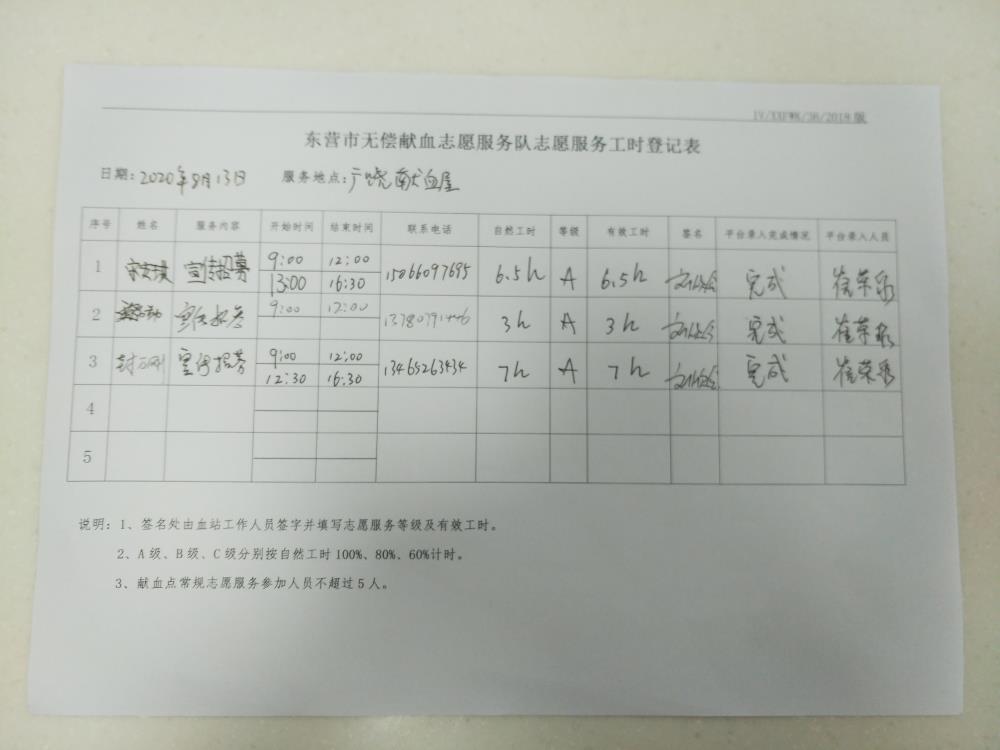 东营市无偿献血志愿服务队志愿服务工时登记表
日期：2020年9月13日 服务地点：广饶献血屋
序号 姓名 服务内容 开始时间 结束时间 联系电话 自然工时 等级 有效工时 签名 平台录入完成情况 平台录入人员
1 宣传招募 9:00 12:00 15066097695 6.5h A 6.5h 完成 崔荣
13:00 16:30
2 宣传招募 9:00 12:00 3h A 3h 完成 崔荣
3 宣传招募 9:00 12:00 13465263434 7h A 7h 完成 崔荣
12:30 16:30
4
5
说明：1、签名处由血站工作人员签字并填写志愿服务等级及有效工时。
2、A级、B级、C级分别按自然工时100%、80%、60%计时。
3、献血点常规志愿服务参加人员不超过5人。